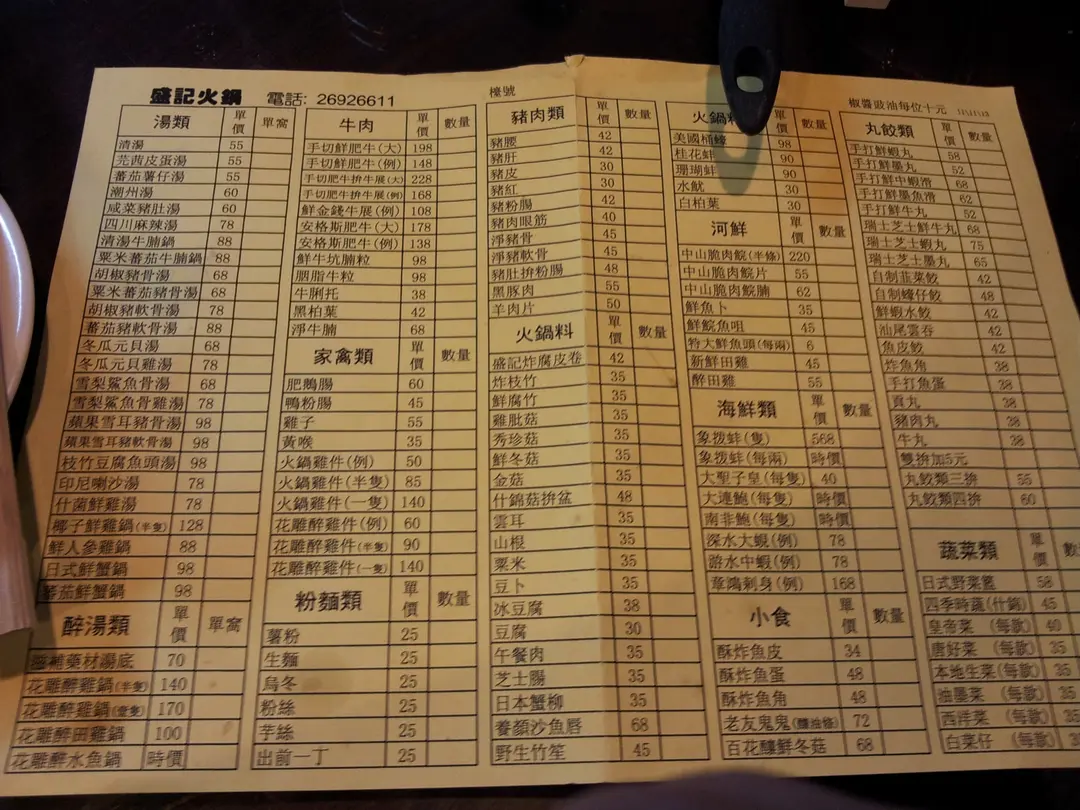 盛記火鍋 電話: 26926611
檯號
椒醬豉油每位十元
湯類 單價 單窩
清湯 55
芫茜皮蛋湯 55
蕃茄薯仔湯 55
潮州湯 60
咸菜豬肚湯 60
四川麻辣湯 78
清湯牛腩鍋 88
粟米蕃茄牛腩鍋 88
胡椒豬骨湯 68
粟米蕃茄豬骨湯 68
胡椒豬軟骨湯 78
蕃茄豬軟骨湯 88
冬瓜元貝湯 68
冬瓜元貝雞湯 78
雪梨鯊魚骨湯 68
雪梨鯊魚骨雞湯 78
蘋果雪耳豬骨湯 98
蘋果雪耳豬軟骨湯 98
枝竹豆腐魚頭湯 98
印尼喇沙湯 78
什菌鮮雞湯 78
椰子鮮雞鍋(半隻) 128
鮮人參雞鍋 88
日式鮮蟹鍋 98
蕃茄鮮蟹鍋 98
醉湯類 單價 單窩
補藥材湯底 70
花雕醉雞鍋(半隻) 140
花雕醉雞鍋(壹隻) 170
花雕醉田雞鍋 100
花雕醉水魚鍋 時價
牛肉 單價 數量
手切鮮肥牛(大) 198
手切鮮肥牛(例) 148
手切肥牛拚牛展(大) 228
手切肥牛拚牛展(例) 168
鮮金錢牛展(例) 108
安格斯肥牛(大) 178
安格斯肥牛(例) 138
鮮牛坑腩粒 98
胭脂牛粒 98
牛脷托 38
黑柏葉 42
淨牛腩 68
家禽類 單價 數量
肥鵝腸 60
鴨粉腸 45
雞子 55
黃喉 35
火鍋雞件(例) 50
火鍋雞件(半隻) 85
火鍋雞件(一隻) 140
花雕醉雞件(例) 60
花雕醉雞件(半隻) 90
花雕醉雞件(一隻) 140
粉麵類 單價 數量
薯粉 25
生麵 25
烏冬 25
粉絲 25
芋絲 25
出前一丁 25
豬肉類 單價 數量
豬腰 42
豬肝 42
豬皮 30
豬紅 30
豬粉腸 42
豬肉眼筋 40
淨豬骨 45
淨豬軟骨 45
豬肚拚粉腸 48
黑豚肉 55
羊肉片 50
火鍋料 單價 數量
盛記炸腐皮卷 42
炸枝竹 35
鮮腐竹 35
雞肶菇 35
秀珍菇 35
鮮冬菇 35
金菇 35
什錦菇拚盆 48
雲耳 35
山根 35
粟米 35
豆卜 35
冰豆腐 38
豆腐 30
午餐肉 35
芝士腸 35
日本蟹柳 35
養顏沙魚唇 68
野生竹笙 45
火鍋料 數量
美國桶蠔 98
桂花蚌 90
珊瑚蚌 90
水魷 30
白柏葉 30
河鮮 單價 數量
中山脆肉鯇(半條) 220
中山脆肉鯇片 55
中山脆肉鯇腩 62
鮮魚卜 35
鮮鯇魚咀 45
特大鮮魚頭(每兩) 6
新鮮田雞 45
醉田雞 55
海鮮類 單價 數量
象拔蚌(隻) 568
象拔蚌(每兩) 時價
大聖子皇(每隻) 40
大連鮑(每隻) 時價
南非鮑(每隻) 時價
深水大蜆(例) 78
游水中蝦(例) 78
章鴻刺身(例) 168
小食 單價 數量
酥炸魚皮 34
酥炸魚蛋 48
酥炸魚角 48
老友鬼鬼(釀油條) 72
百花釀鮮冬菇 68
丸餃類 單價 數量
手打鮮蝦丸 58
手打鮮墨丸 52
手打鮮中蝦滑 68
手打鮮墨魚滑 62
手打鮮牛丸 52
瑞士芝士鮮牛丸 68
瑞士芝士蝦丸 75
瑞士芝士墨丸 65
自制韮菜餃 42
自制蠔仔餃 48
鮮蝦水餃 42
汕尾雲吞 42
魚皮餃 42
炸魚角 38
手打魚蛋 38
貢丸 38
豬肉丸 38
牛丸 38
雙拚加5元
丸餃類三拚 55
丸餃類四拚 60
蔬菜類 單價
日式野菜籃 58
四季時蔬(什錦) 45
皇帝菜 (每款) 40
唐好菜 (每款) 35
本地生菜(每款) 35
油墨菜 (每款) 35
西洋菜 (每款)
白菜仔 (每款)